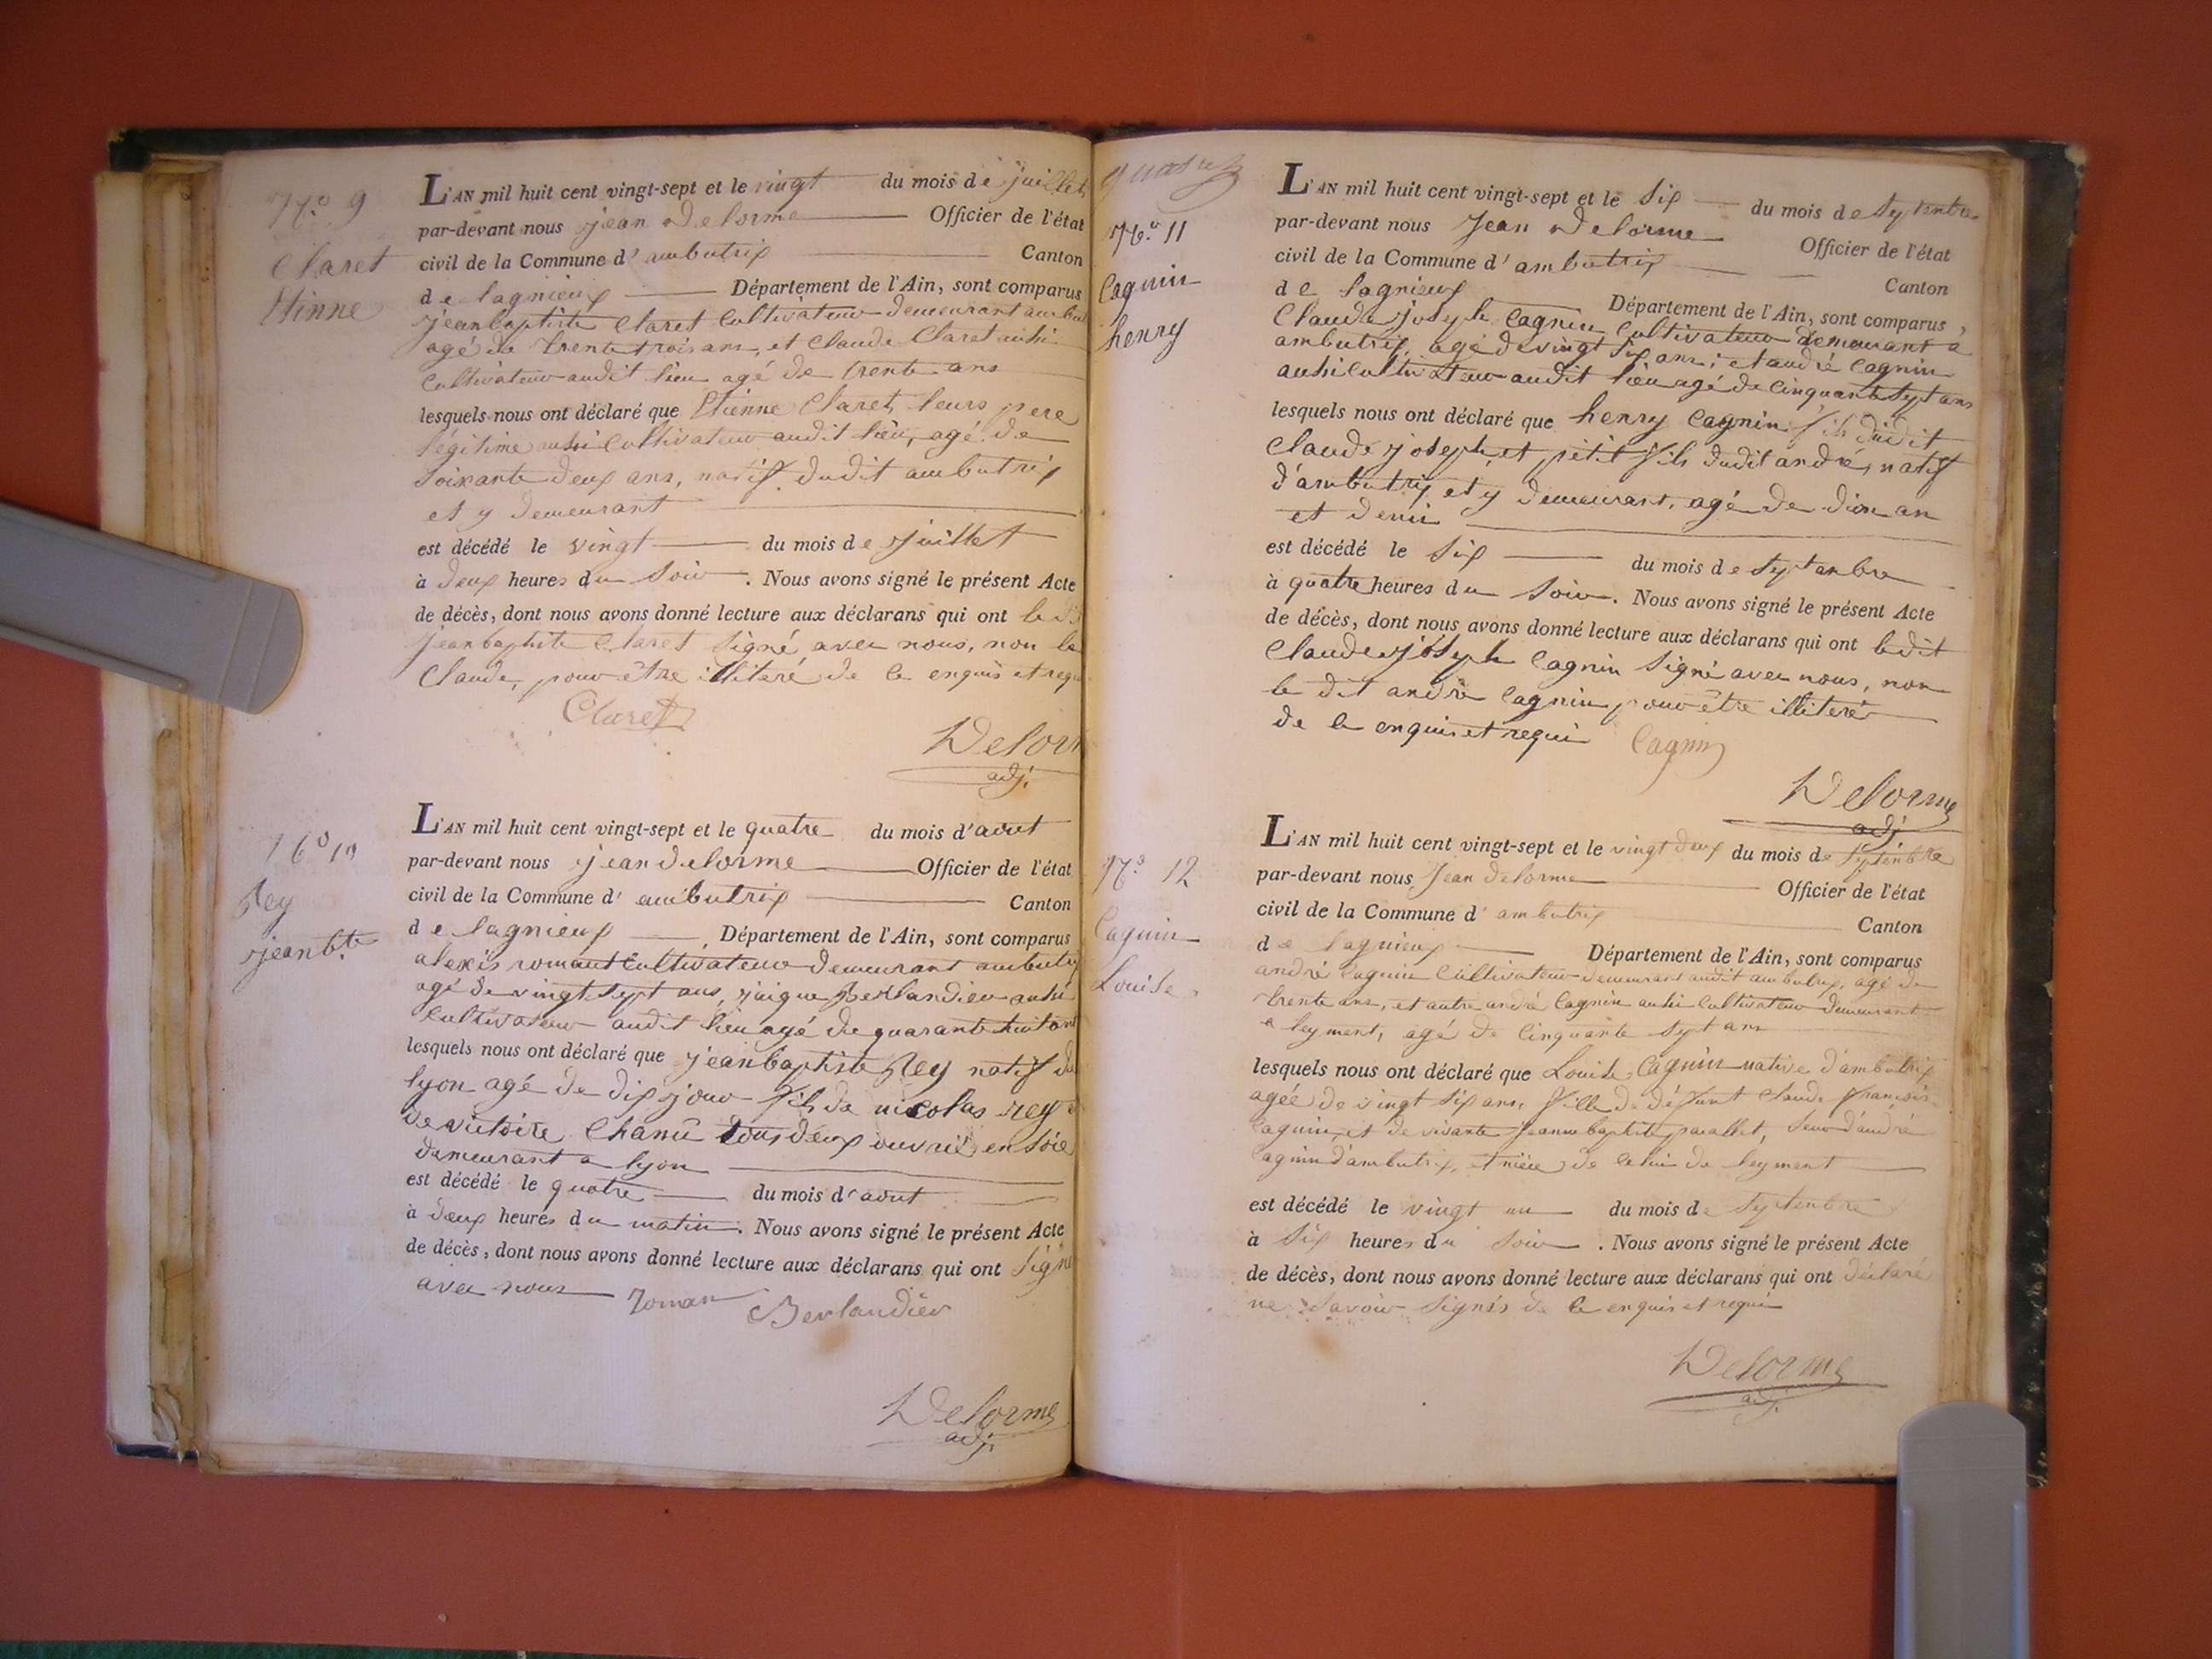 N.º 9
Claret
Etinne
L'AN mil huit cent vingt-sept et le vingt du mois de juillet
par-devant nous jean Delorme Officier de l'état
civil de la Commune d'ambutrix Canton
de lagnieux Département de l'Ain, sont comparus
jeanbaptiste Claret Cultivateur demeurant
agé de trente trois ans, et Claude Claret aussi
Cultivateur audit lieu agé de trente ans
lesquels nous ont déclaré que Etienne Claret, leurs pere
légitime aussi Cultivateur audit lieu, agé de
soixante deux ans, natif dudit ambutrix
et y demeurant
est décédé le vingt du mois de juillet
à deux heures du soir. Nous avons signé le présent Acte
de décès, dont nous avons donné lecture aux déclarans qui ont
jeanbaptiste Claret signé avec nous, non le
Claude, pour être illiteré de ce enquis et
Claret
Delorm
adj.
N.º 10
Rey
jean bte
L'AN mil huit cent vingt-sept et le quatre du mois d'aout
par-devant nous jean delorme Officier de l'état
civil de la Commune d'ambutrix Canton
de lagnieux Département de l'Ain, sont comparus
alexis romant Cultivateur demeurant
agé de vingt sept ans, jaique Berlandier aussi
Cultivateur audit lieu agé de quarante huit ans
lesquels nous ont déclaré que jeanbaptiste Rey natif de
lyon agé de dix jour fils de nicolas rey
de victoire Chanû tous deux ouvrié en soie
demeurant a lyon
est décédé le quatre du mois d'aout
à deux heures du matin. Nous avons signé le présent Acte
de décès, dont nous avons donné lecture aux déclarans qui ont signé
avec nous Roman Berlandier
Delorme
adj.
N.º 11
Cagnin
henry
L'AN mil huit cent vingt-sept et le six du mois de septembre
par-devant nous Jean Delorme Officier de l'état
civil de la Commune d'ambutrix Canton
de lagnieux Département de l'Ain, sont comparus,
Claude joseph Cagnin Cultivateur demeurant a
ambutrix, agé de vingt six ans; et andré Cagnin
aussi Cultivateur audit lieu agé de cinquante sept ans
lesquels nous ont déclaré que henry Cagnin fils dudit
Claude joseph, et petit fils dudit andré, natif
d'ambutrix, et y demeurant, agé de d'un an
et demi
est décédé le six du mois de septambre
à quatre heures du soir. Nous avons signé le présent Acte
de décès, dont nous avons donné lecture aux déclarans qui ont ledit
Claude joseph Cagnin signé avec nous, non
le dit andré Cagnin pour être illiteré
de ce enquis et requi Cagnin
Delorme
adj
N.º 12
Cagnin
Louise
L'AN mil huit cent vingt-sept et le vingt deux du mois de septenbre
par-devant nous Jean delorme Officier de l'état
civil de la Commune d'ambutrix Canton
de lagnieux Département de l'Ain, sont comparus
andré Cagnin Cultivateur demeurant audit ambutrix, agé de
trente ans, et autre andré Cagnin aussi Cultivateur demeurant
a leyment, agé de Cinquante sept ans
lesquels nous ont déclaré que Louise Cagnin native d'ambutrix
agée de vingt six ans, fille de défunt Claude françois
Cagnin, et de vivante Jeanne baptiste, seur d'andré
Cagnin d'ambutrix, et nièce de celui de leyment
est décédé le vingt un du mois de septenbre
à six heures du soir. Nous avons signé le présent Acte
de décès, dont nous avons donné lecture aux déclarans qui ont déclaré
ne savoir signés de ce enquis et requi
Delorme
adj.